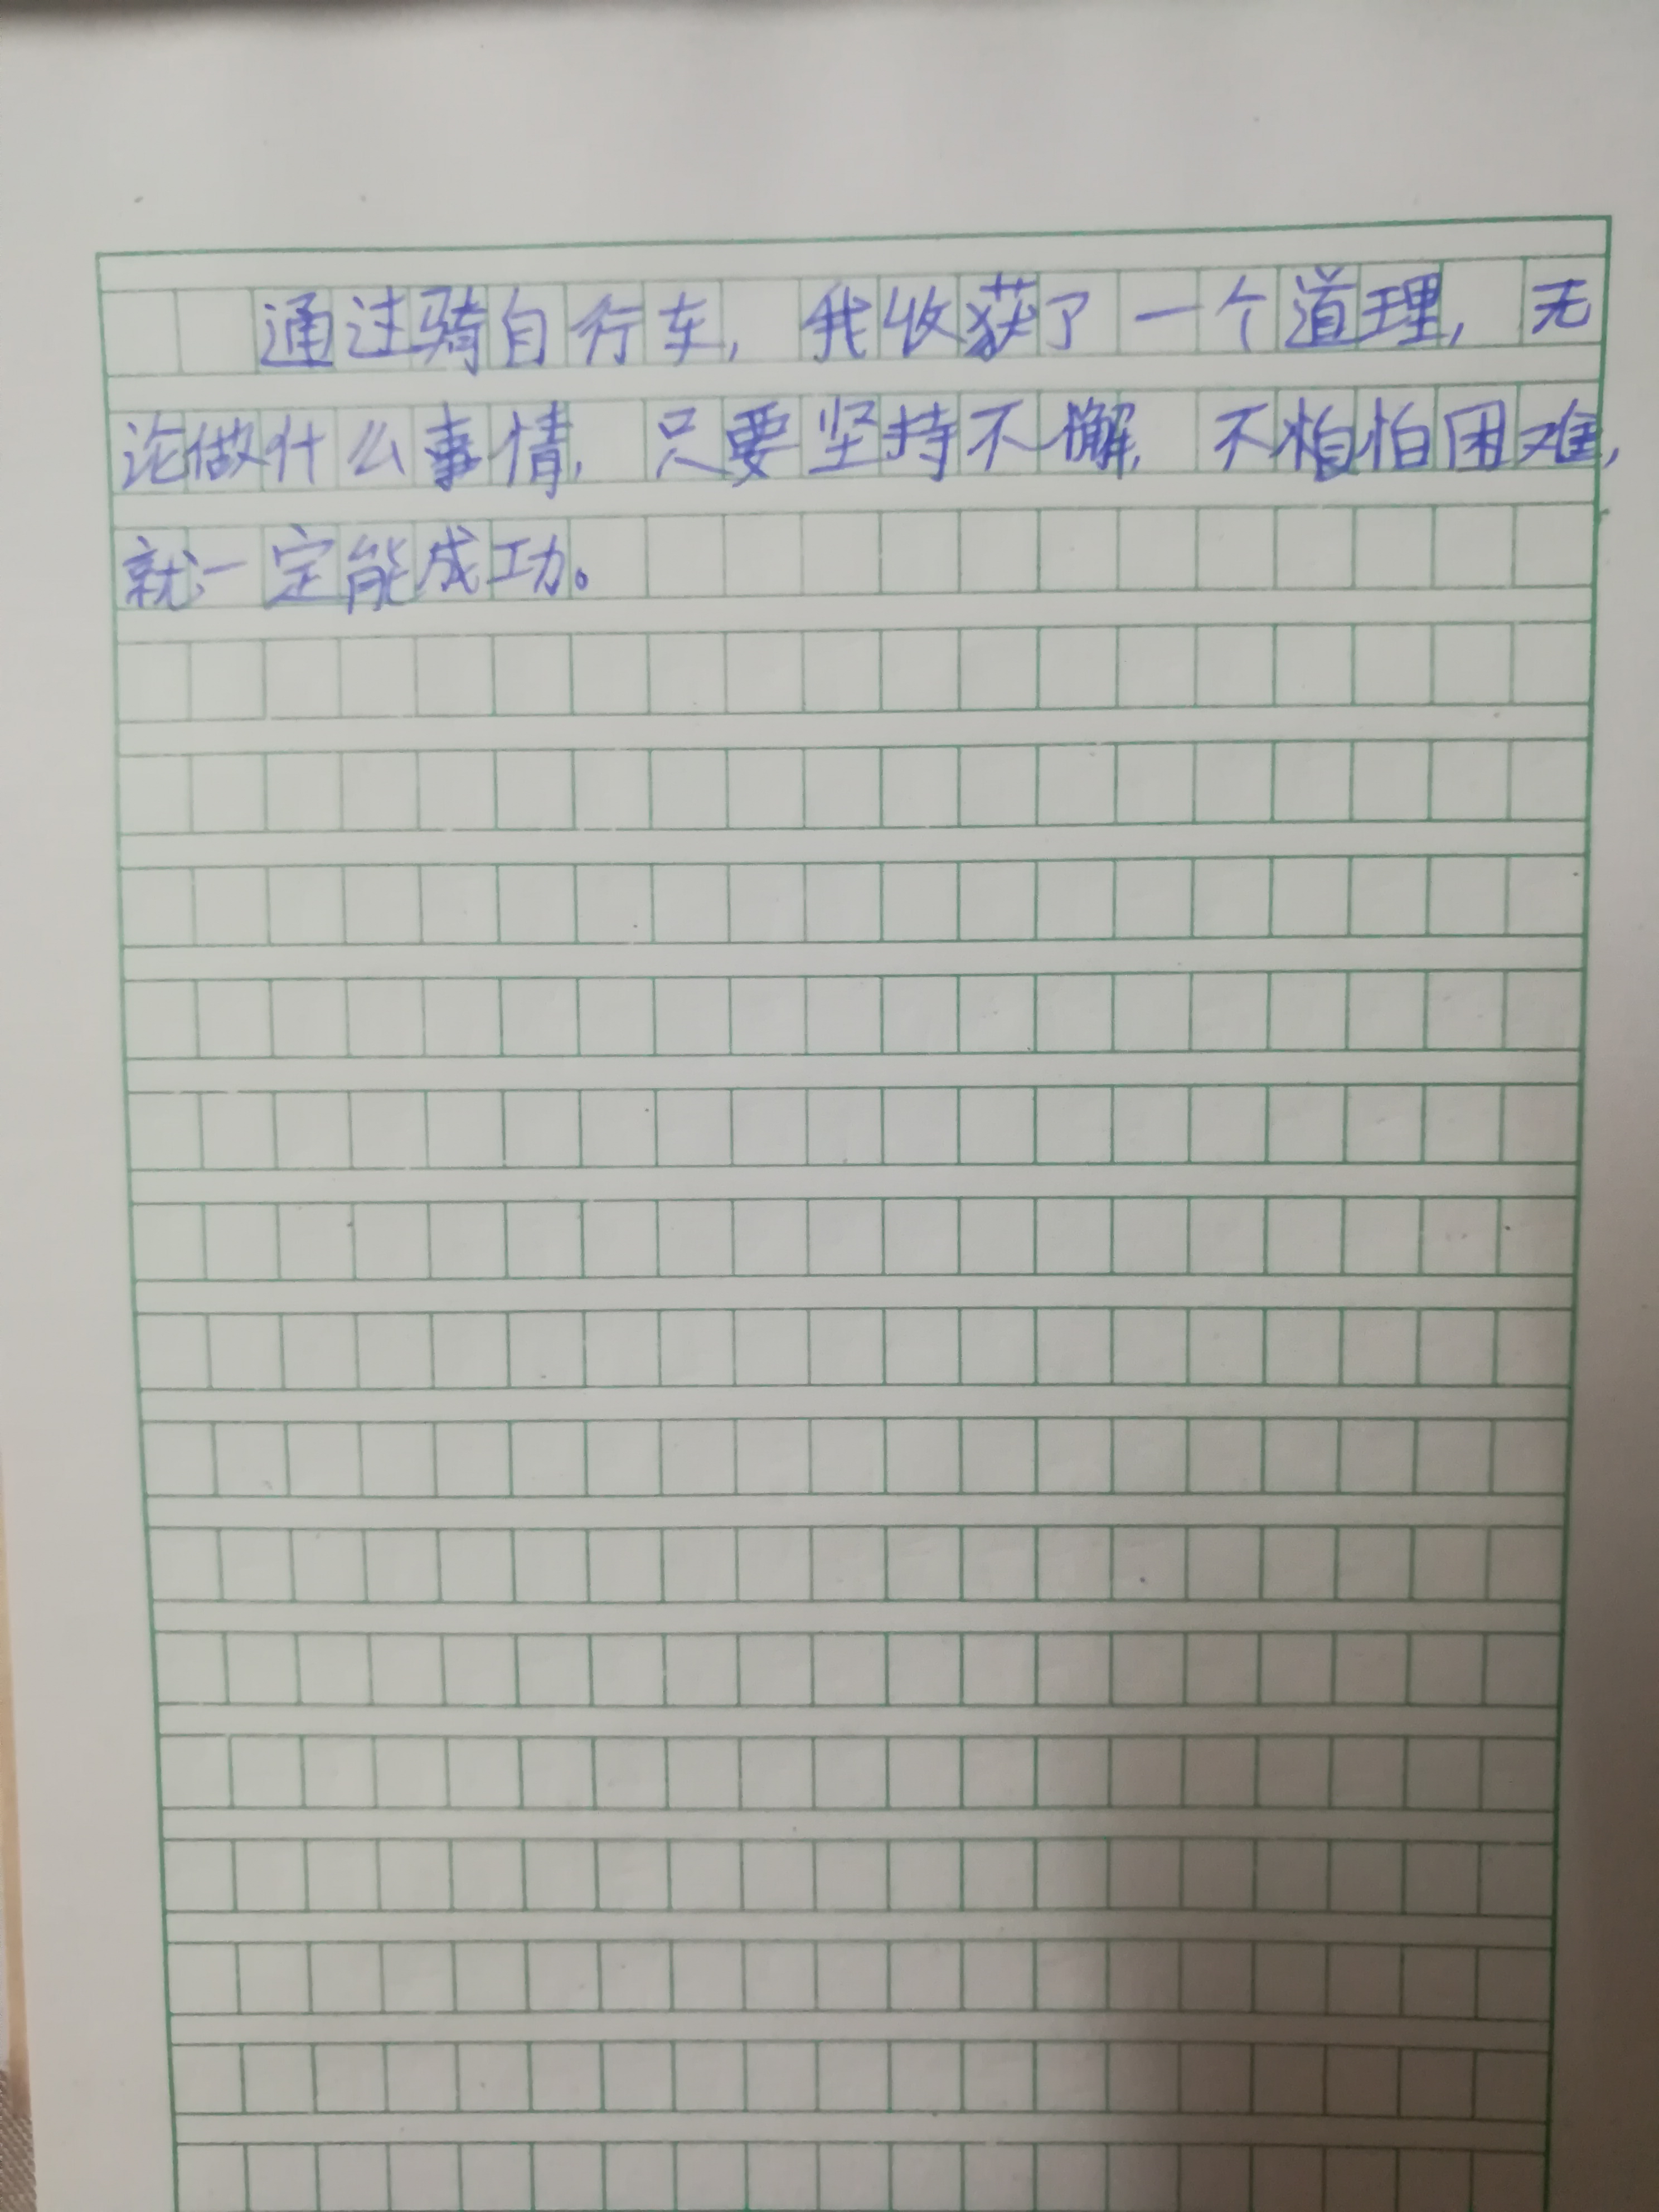 通过骑自行车,我收获了一个道理,无
论做什么事情,只要坚持不懈,不怕怕困难,
就一定能成功。